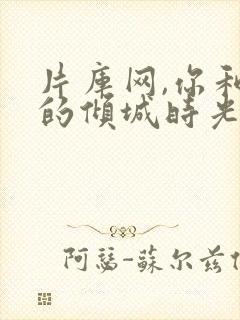 片库网,你和
的倾城时光
阿瑟-蘇尔兹